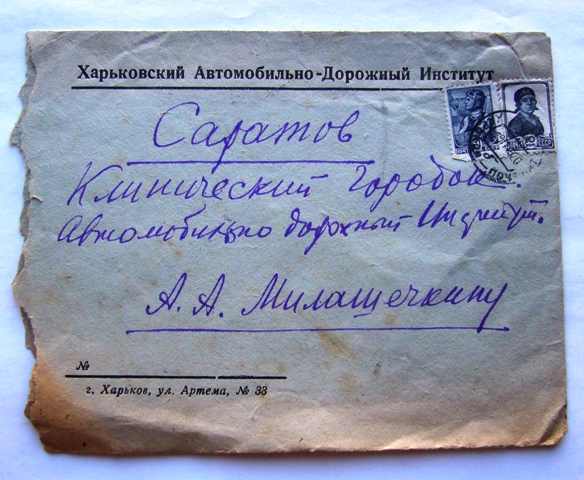 Харьковский Автомобильно-Дорожный Институт
Саратов
Клинический Городок.
Автомобильно дорожный Институт.
А. А. Милащечкину
№
г. Харьков, ул. Артема, № 33